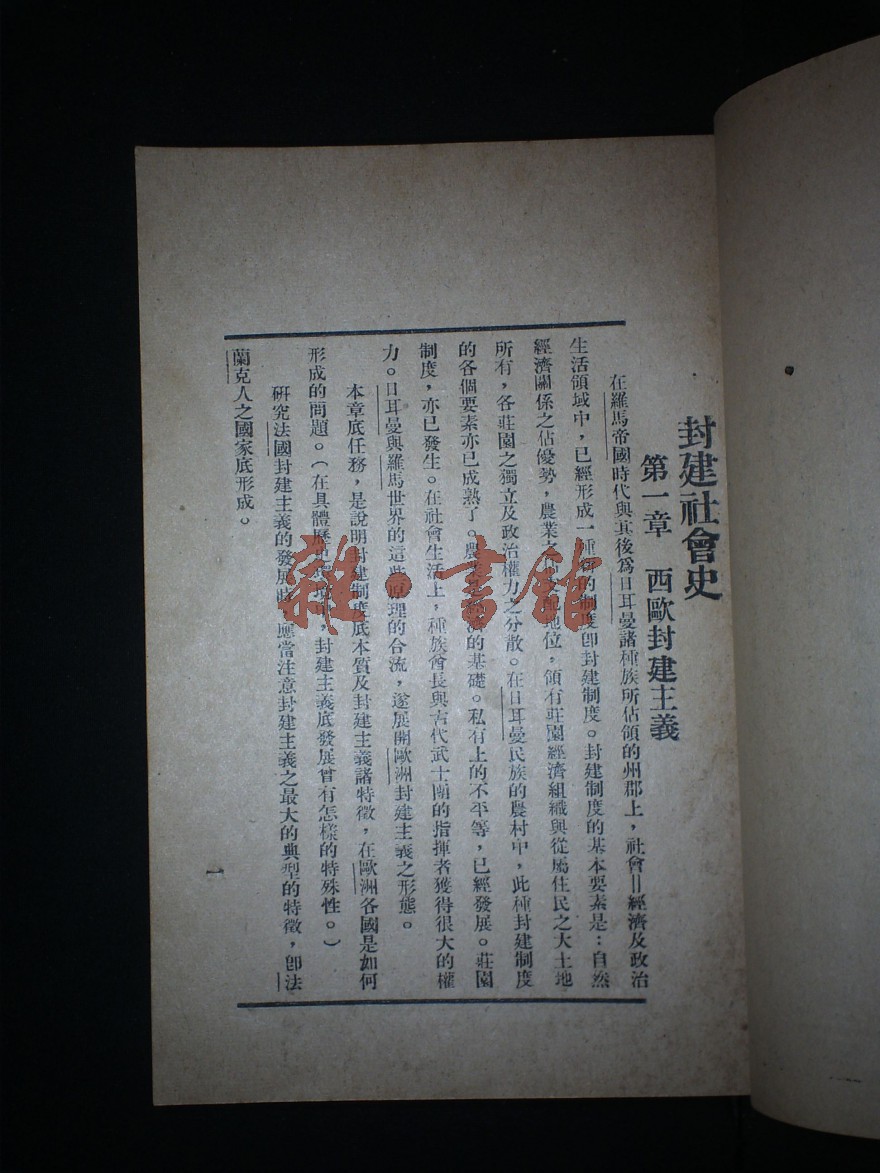 封建社會史
第一章 西歐封建主義
在羅馬帝國時代與其後爲日耳曼諸種族所佔領的州郡上，社會＝經濟及政治
生活領域中，已經形成一種的制度卽封建制度。封建制度的基本要素是：自然
經濟關係之佔優勢，農業之配地位，領有莊園經濟組織與從屬住民之大土地
所有，各莊園之獨立及政治權力之分散。在日耳曼民族的農村中，此種封建制度
的各個要素亦已成熟了。農業的基礎。私有上的不平等，已經發展。莊園
制度，亦已發生。在社會生活上，種族酋長與古代武士團的指揮者獲得很大的權
力。日耳曼與羅馬世界的這些原理的合流，遂展開歐洲封建主義之形態。
本章底任務，是說明封建制度底本質及封建主義諸特徵，在歐洲各國是如何
形成的問題。（在具體歷史環境中，封建主義底發展曾有怎樣的特殊性。）
硏究法國封建主義的發展時，應當注意封建主義之最大的典型的特徵，卽法
蘭克人之國家底形成。
一
雜·書館